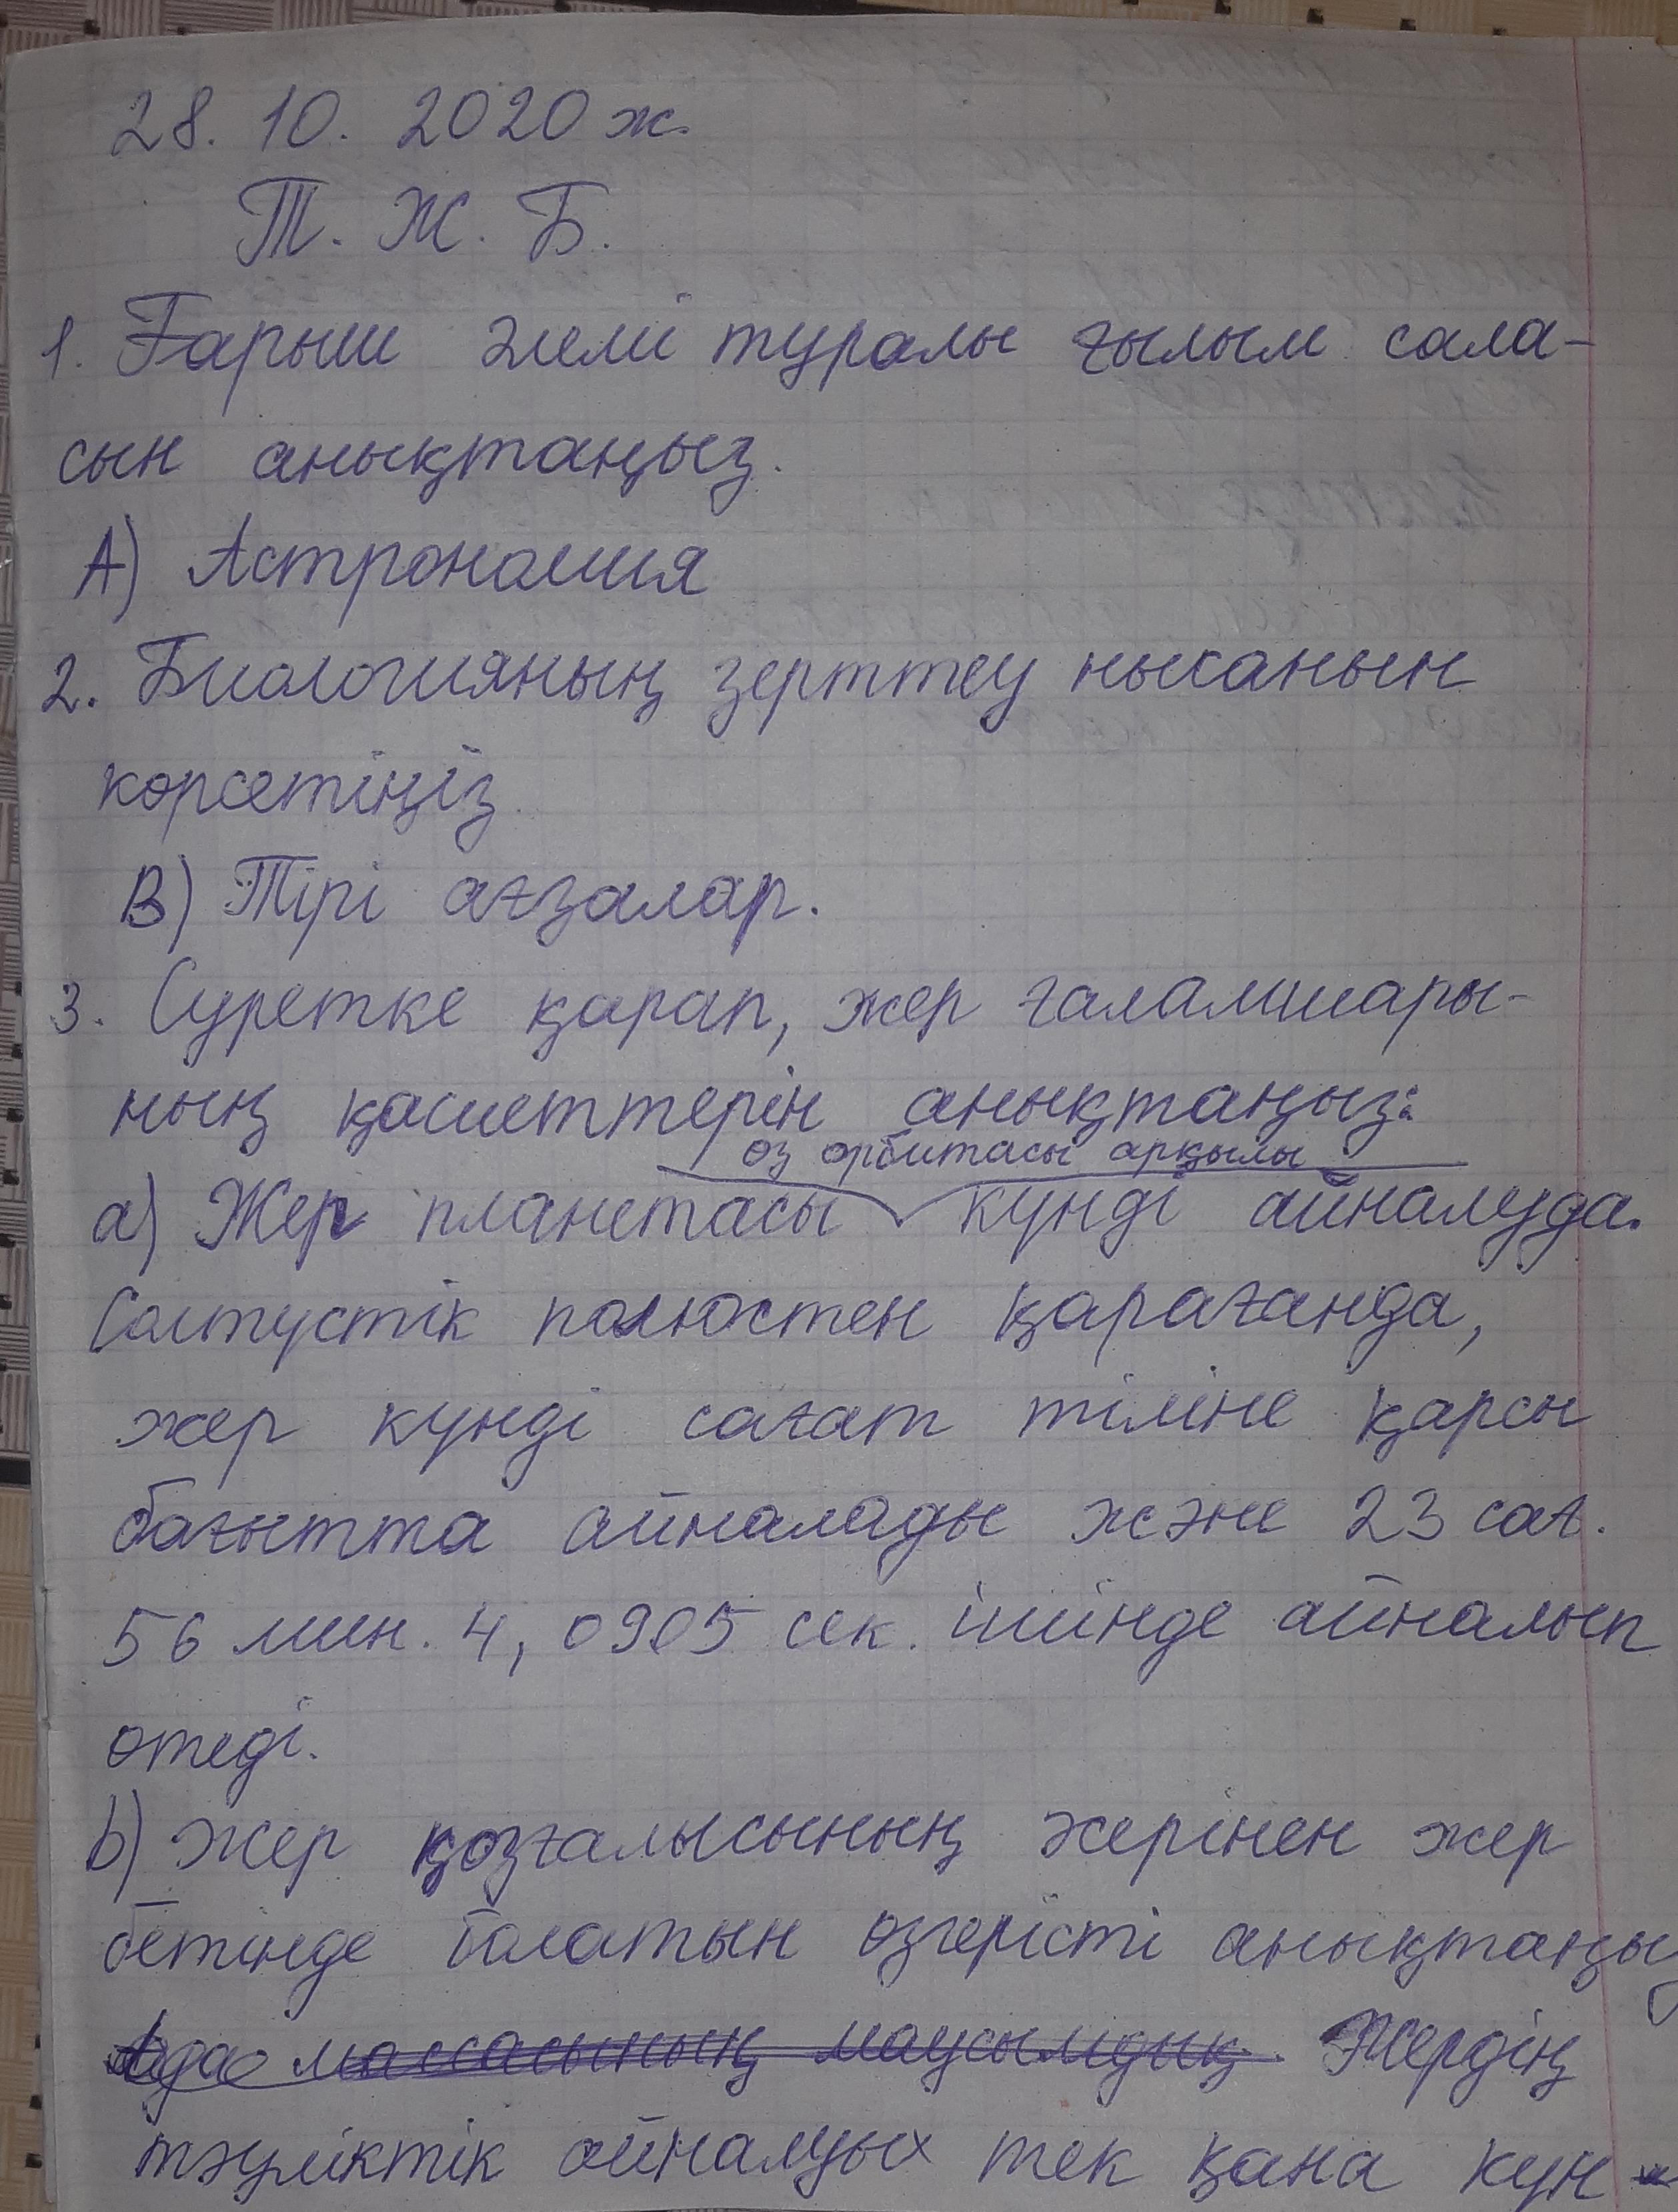 28. 10. 2020 ж.
Т. Ж. Б.
1. Ғарыш әлемі туралы ғылым сала-
сын анықтаңыз.
A) Астрономия
2. Биологияның зерттеу нысанын
көрсетіңіз.
B) Тірі ағзалар.
3. Суретке қарап, жер ғаламшары-
ның қасиеттерін анықтаңыз:
өз орбитасы арқылы
a) Жер планетасы күнді айналуда.
Солтүстік полюстен қарағанда,
жер күнді сағат тіліне қарсы
бағытта айналады және 23 сағ.
56 мин. 4,0905 сек. ішінде айналып
өтеді.
b) Жер қозғалысының әсерінен жер
бетінде болатын өзгерісті анықтаңыз
массасының маусымдық. Жердің
тәуліктік айналуы тек қана күн